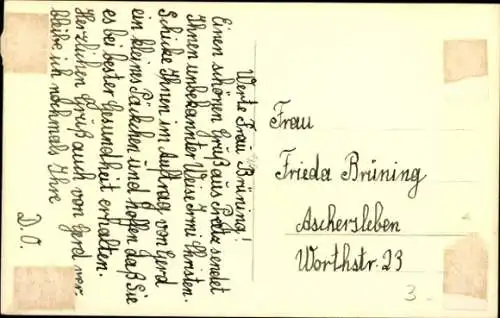 Werte Frau Brüning!
Einen schönen Gruß aus Prata sendet
Ihnen unbekannter Weise Irmi Christen.
Schicke Ihnen im Auftrag von Gerd
ein kleines Päckchen und hoffen daß Sie
es bei bester Gesundheit erhalten.
Herzlichen Gruß auch von Gerd ver-
bleibe ich nochmals Ihre
D. O.
Frau
Frieda Brüning
Aschersleben
Worthstr. 23
3.-